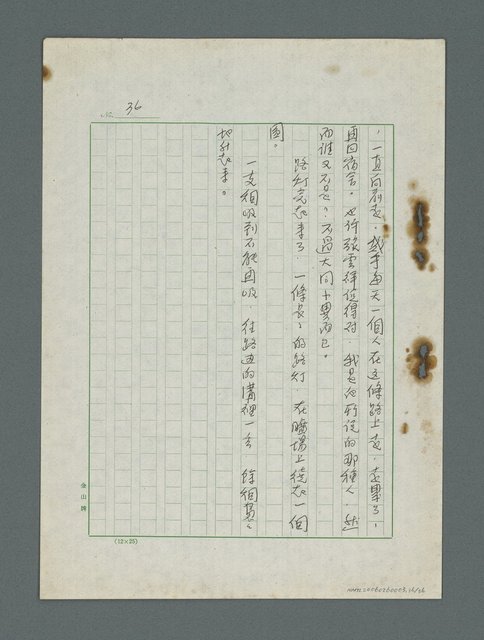 No. 36
，一直向前走，幾乎每天一個人在這條路上走，走累了，
再回宿舍。也許張雲祥說得對，我是他所說的那種人，然
而誰又不是？不過大同小異而已。
路灯亮起來了，一條長長的路灯 在曠場上繞起一個
圈。
一支烟吸到不能再吸 往路邊的溝裡一丟 餘烟裊裊
地升起來。
金山牌
(12×25)
NMTL20060260003.36/36